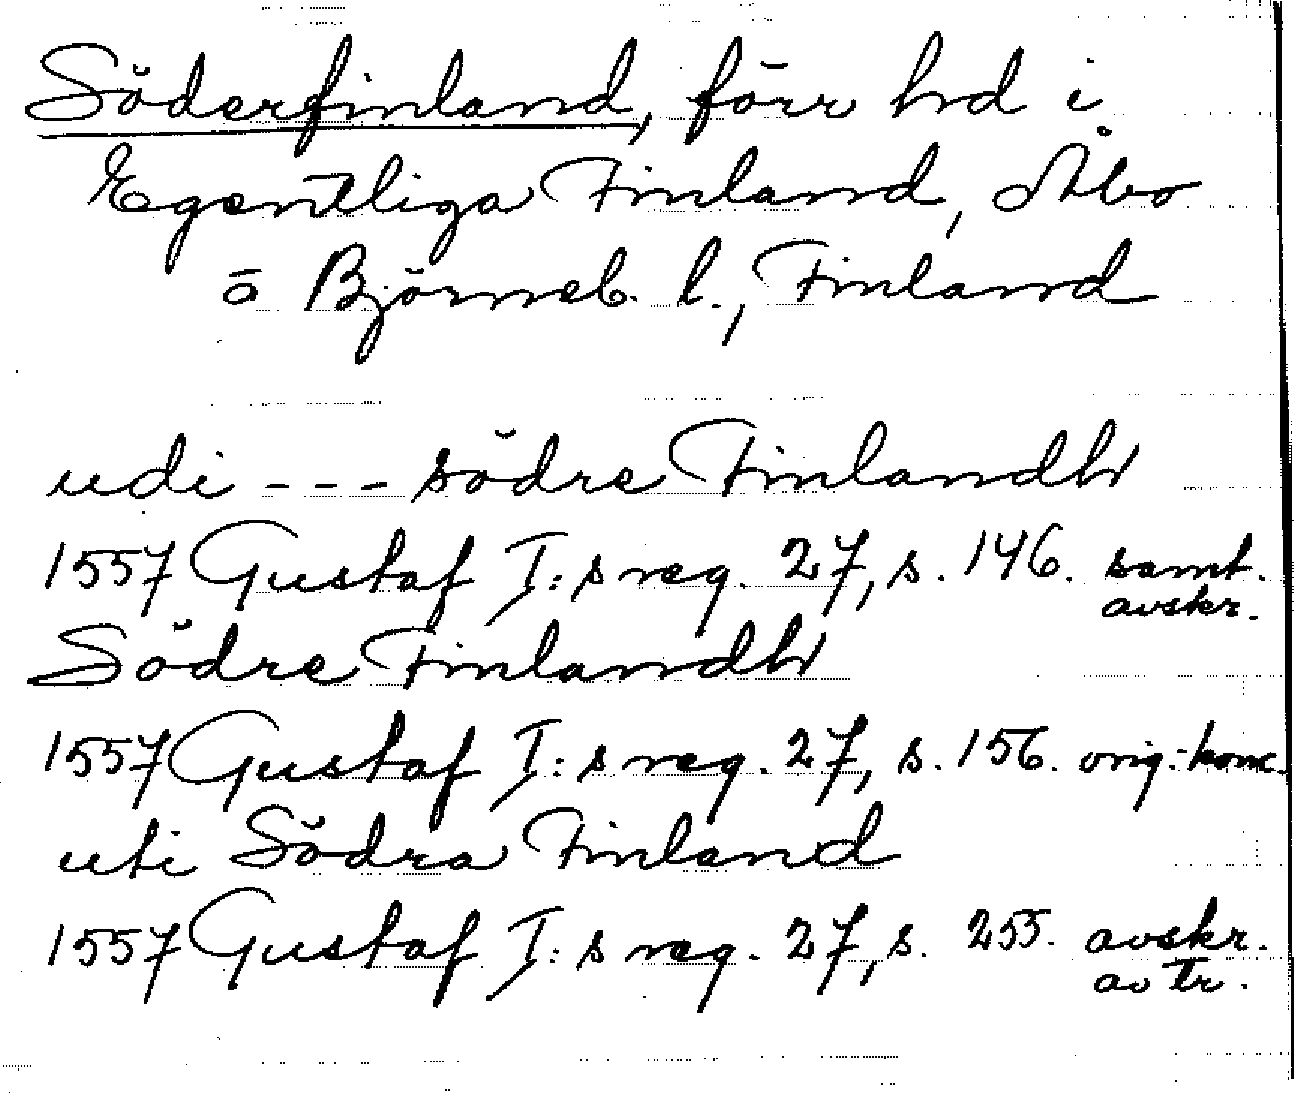 Söderfinland, förr hd i
Egentliga Finland, Åbo
o Björneb. l., Finland
udi --- södre Finlandh
1557 Gustaf I:s reg. 27, s. 146. samt.
avskr.
Södre Finlandh
1557 Gustaf I:s reg. 27, s. 156. orig.-konc.
uti Södra Finland
1557 Gustaf I:s reg. 27, s. 255. avskr.
av tr.